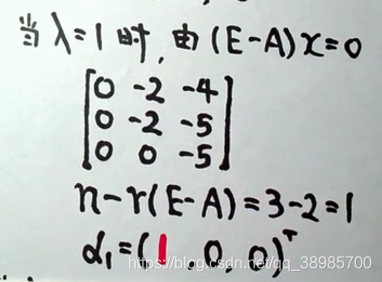 当 λ=1 时, 由 (E-A)x=0
[0 -2 -4
0 -2 -5
0 0 -5]
n-r(E-A)=3-2=1
α₁=(1, 0, 0)ᵀ
https://blog.csdn.net/qq_38985700